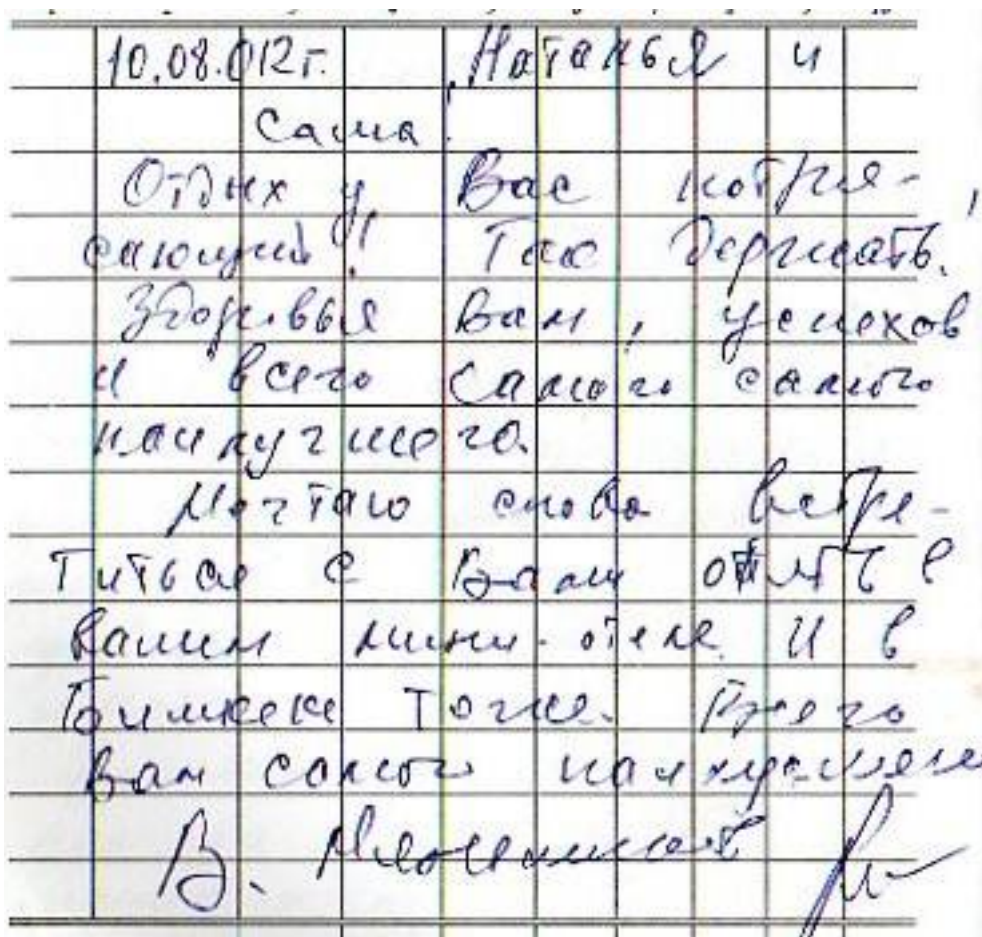 10.08.012г. Наталья и
Саша!
Отдых у Вас потря-
сающий! Так держать.
Здоровья Вам, успехов
и всего самого самого
наилучшего.
Мечтаю снова встре-
титься с Вами опять в
вашем мини-отеле. И в
тоже. Всего
Вам самого наилучшего
В.